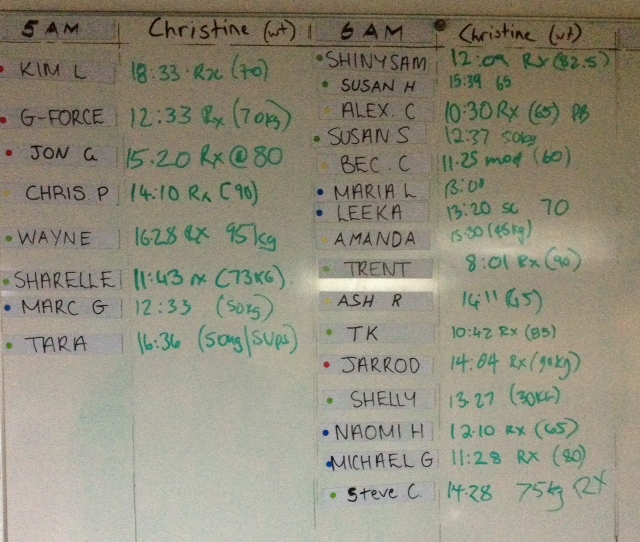 5 AM Christine (wt)
KIM L 18:33 Rx (70)
G-FORCE 12:33 Rx (70kg)
JON G 15.20 Rx @ 80
CHRIS P 14:10 Rx (90)
WAYNE 16.28 Rx 95kg
SHARELLE 11:43 rx (73KG)
MARC G 12:33 (50kg)
TARA 16:36
6 AM Christine (wt)
SHINYSAM 12:09 Rx (82.5)
SUSAN H 15:39 65
ALEX. C 10:30 Rx (65) PB
SUSAN S 12:37 50kg
BEC. C 11.25 mod (60)
MARIA L 13:01
LEEKA 13:20 SC 70
AMANDA 15:30 (45kg)
TRENT 8:01 Rx (90)
ASH R 14:11 (65)
TK 10:42 Rx (85)
JARROD 14:04 Rx (90kg)
SHELLY 13.27 (30KG)
NAOMI H 12.10 Rx (65)
MICHAEL G 11:28 Rx (80)
Steve C. 14.28 75kg RX